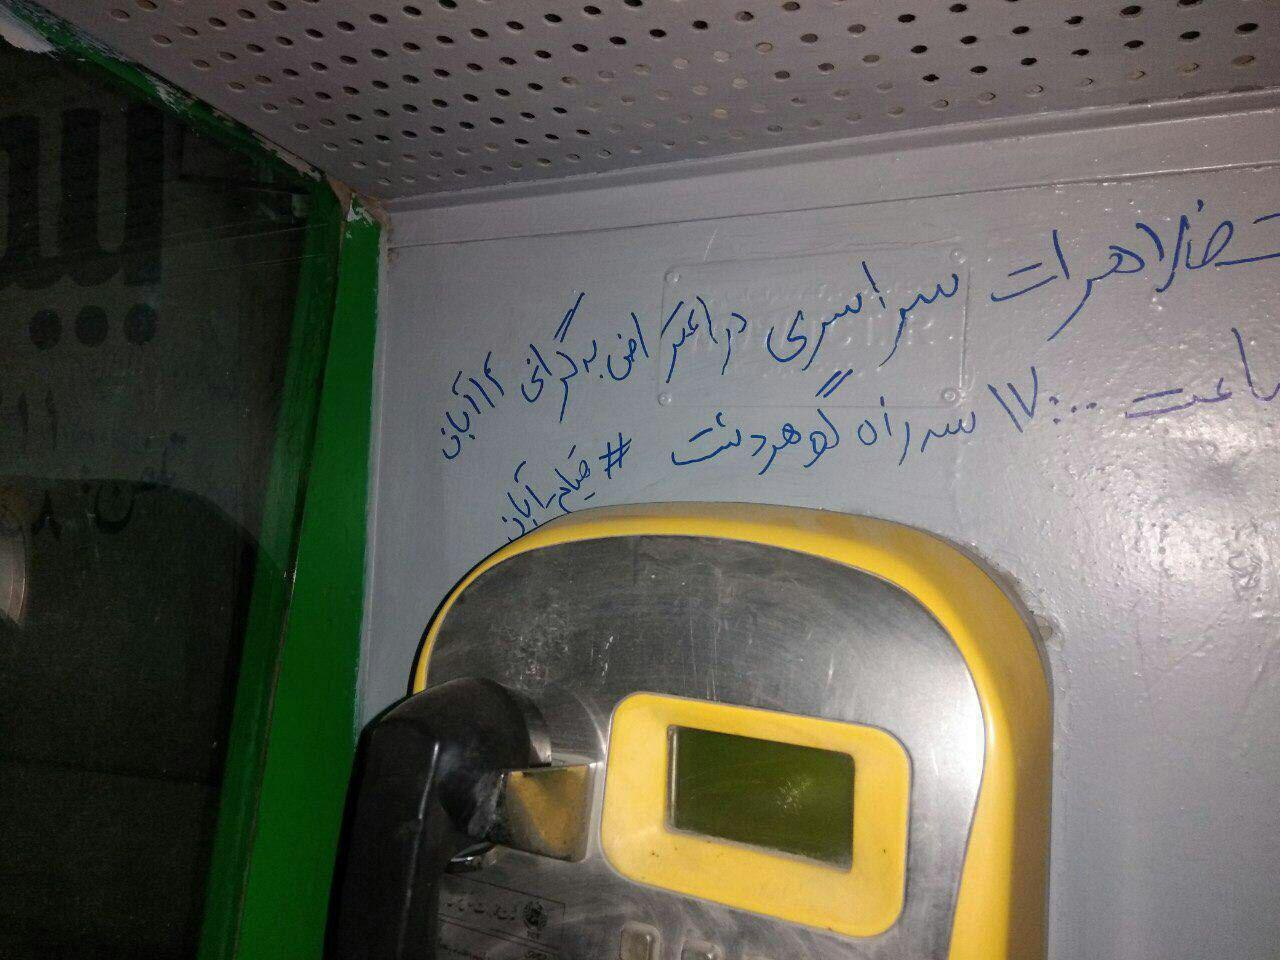 تظاهرات سراسری در اعتراض به گرانی ۱۴ آبان
ساعت ۱۷:۰۰ سه راه گوهردشت #قیام_آبان